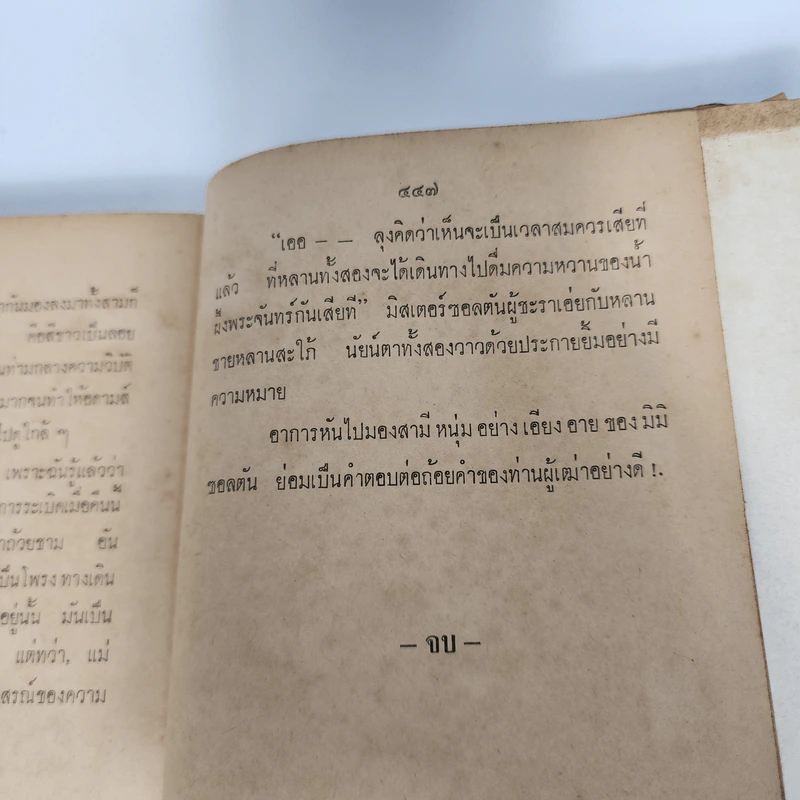 ากันมองลงมาทั้งสามที
คือสีขาวเป็นลอย
นท่ามกลางความวิบัติ
มากจนทำให้อดามส์
ไปดูใกล้ ๆ
เพราะฉันรู้แล้วว่า
การระเบิดเมื่อคืนนี้
าถ้วยชาม อัน
เป็นโพรงทางเดิน
อยู่นั้น มันเป็น
แต่ทว่า, แม่
สรณ์ของความ
๔๔๗
“เออ – – ลุงคิดว่าเห็นจะเป็นเวลาสมควรเสียที่
แล้ว ที่หลานทั้งสองจะได้เดินทางไปดื่มความหวานของน้ำ
ผึ้งพระจันทร์กันเสียที” มิสเตอร์ซอลตันผู้ชะราเอ่ยกับหลาน
ชายหลานสะใภ้ นัยน์ตาทั้งสองวาวด้วยประกายยิ้มอย่างมี
ความหมาย
อาการหันไปมองสามี หนุ่ม อย่าง เอียง อาย ของ มิมิ
ซอลตัน ย่อมเป็นคำตอบต่อถ้อยคำของท่านผู้เฒ่าอย่างดี !.
– จบ –